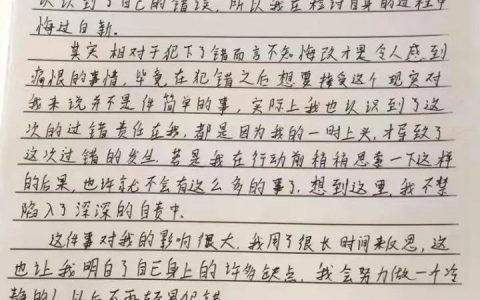 次认识到了自己的错误，所以我在检讨自身的过程中
悔过自新。
其实相对于犯下了错而言不知悔改才是令人感到
痛恨的事情，毕竟在犯错之后想要接受这个现实对
我来说并不是件简单的事，实际上我也认识到了这
次的过错责任在我，都是因为我的一时上头，才导致了
这次过错的发生。若是我在行动前稍稍思索一下这样
的后果，也许就不会有这么多的事了，想到这里，我不禁
陷入了深深的自责中。
这件事对我的影响很大，我用了很长时间来反思，这
也让我明白了自己身上的许多缺点，我会努力做一个冷
静的人，以后不再轻易犯错